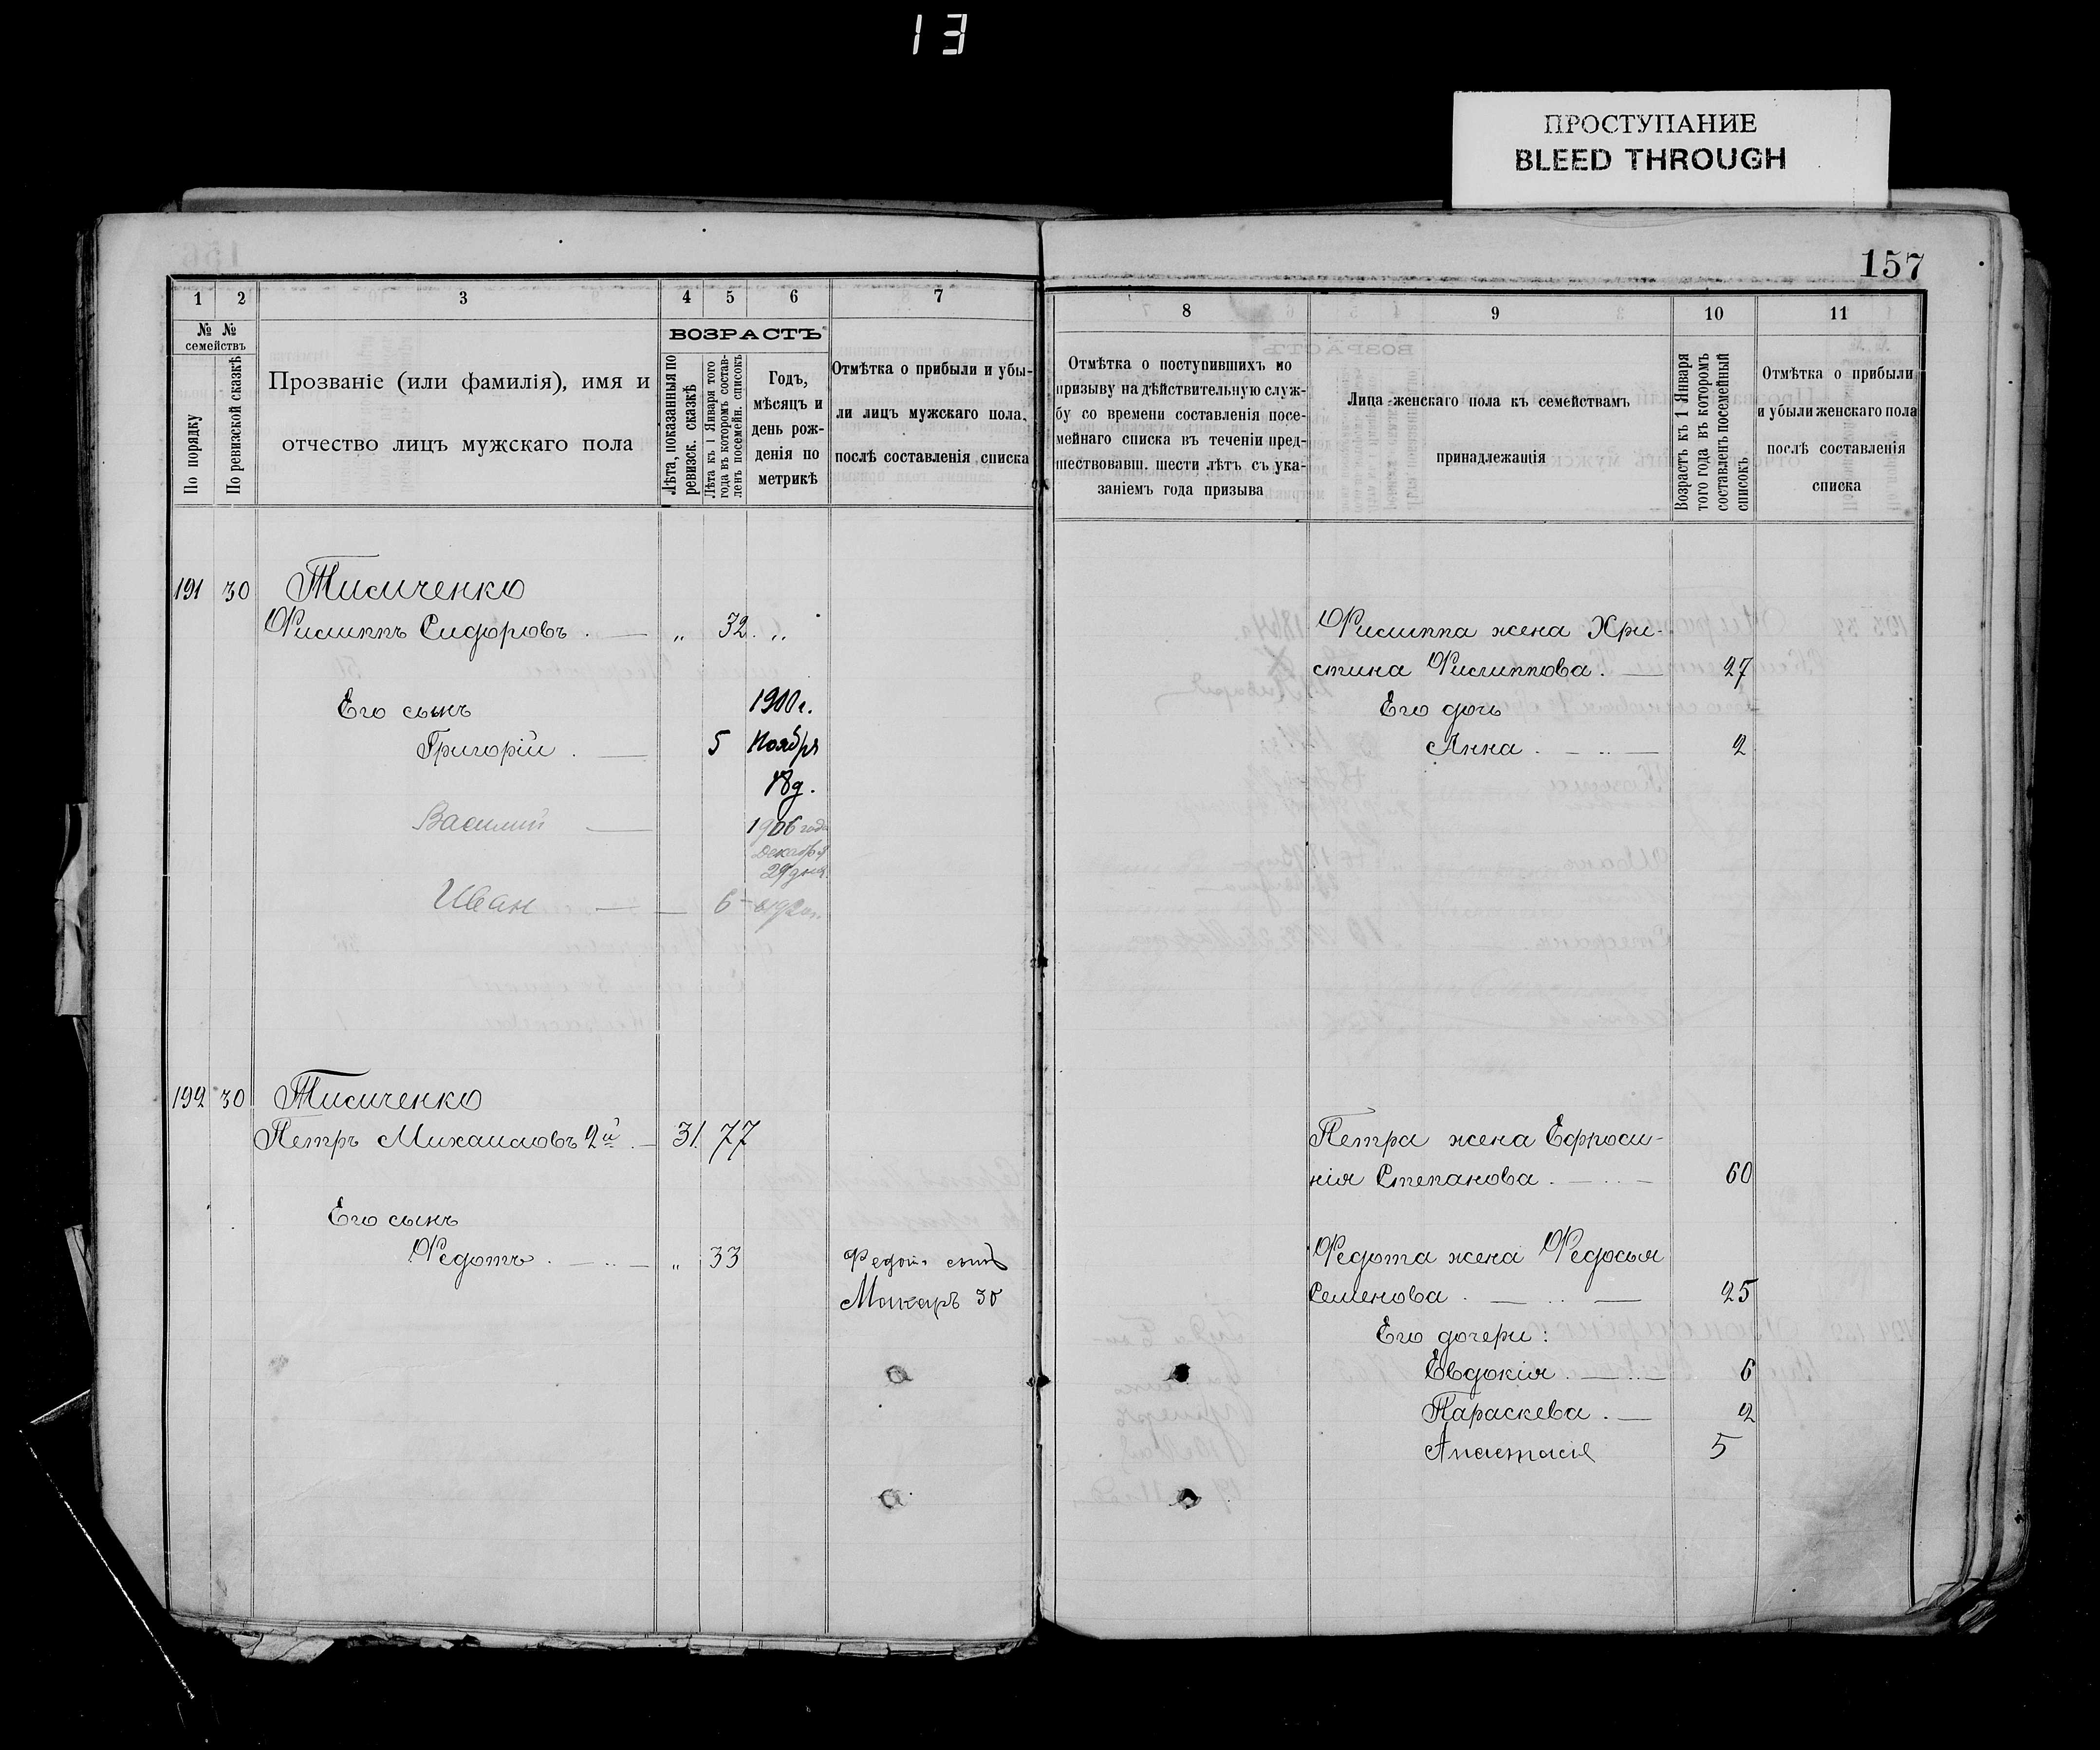 13
ПРОСТУПАНИЕ
BLEED THROUGH
157
1 2 3 4 5 6 7
№ №
семействъ
По порядку
По ревизской сказкѣ
Прозваніе (или фамилія), имя и
отчество лицъ мужскаго пола
ВОЗРАСТЪ
Лѣта, показанныя по
ревизск. сказкѣ
Лѣта къ 1 Января того
года въ которомъ состав-
ленъ посемейн. списокъ
Годъ,
мѣсяцъ и
день рож-
денія по
метрикѣ
Отмѣтка о прибыли и убы-
ли лицъ мужскаго пола,
послѣ составленія списка
8 9 10 11
Отмѣтка о поступившихъ по
призыву на дѣйствительную служ-
бу со времени составленія посе-
мейнаго списка въ теченіи пред-
шествовавш. шести лѣтъ съ ука-
заніемъ года призыва
Лица женскаго пола къ семействамъ
принадлежащія
Возрастъ къ 1 Января
того года въ которомъ
составленъ посемейный
списокъ
Отмѣтка о прибыли
и убыли женскаго пола
послѣ составленія
списка
191 30 Тисиченко
Филиппъ Сидоровъ . — „ 32. „
Его сынъ 1900 г.
Григорій . — 5 Ноября
18 д.
Василий — 1906 года
Декабря
29 дня
Иван — — 6
Филиппа жена Хри-
стина Филиппова . — 27
Его дочь
Анна . — .. — 2
192 30 Тисиченко
Петръ Михаиловъ 2й . — 31. 77
Его сынъ
Федотъ . — .. — „ 33
Федот. сынъ
Макаръ 30
Петра жена Ефроси-
нія Степанова . — .. — 60
Федота жена Федосья
Семенова . — .. — 25
Его дочери:
Евдокія . — .. — 6
Параскева . — 2
Анастасія 5